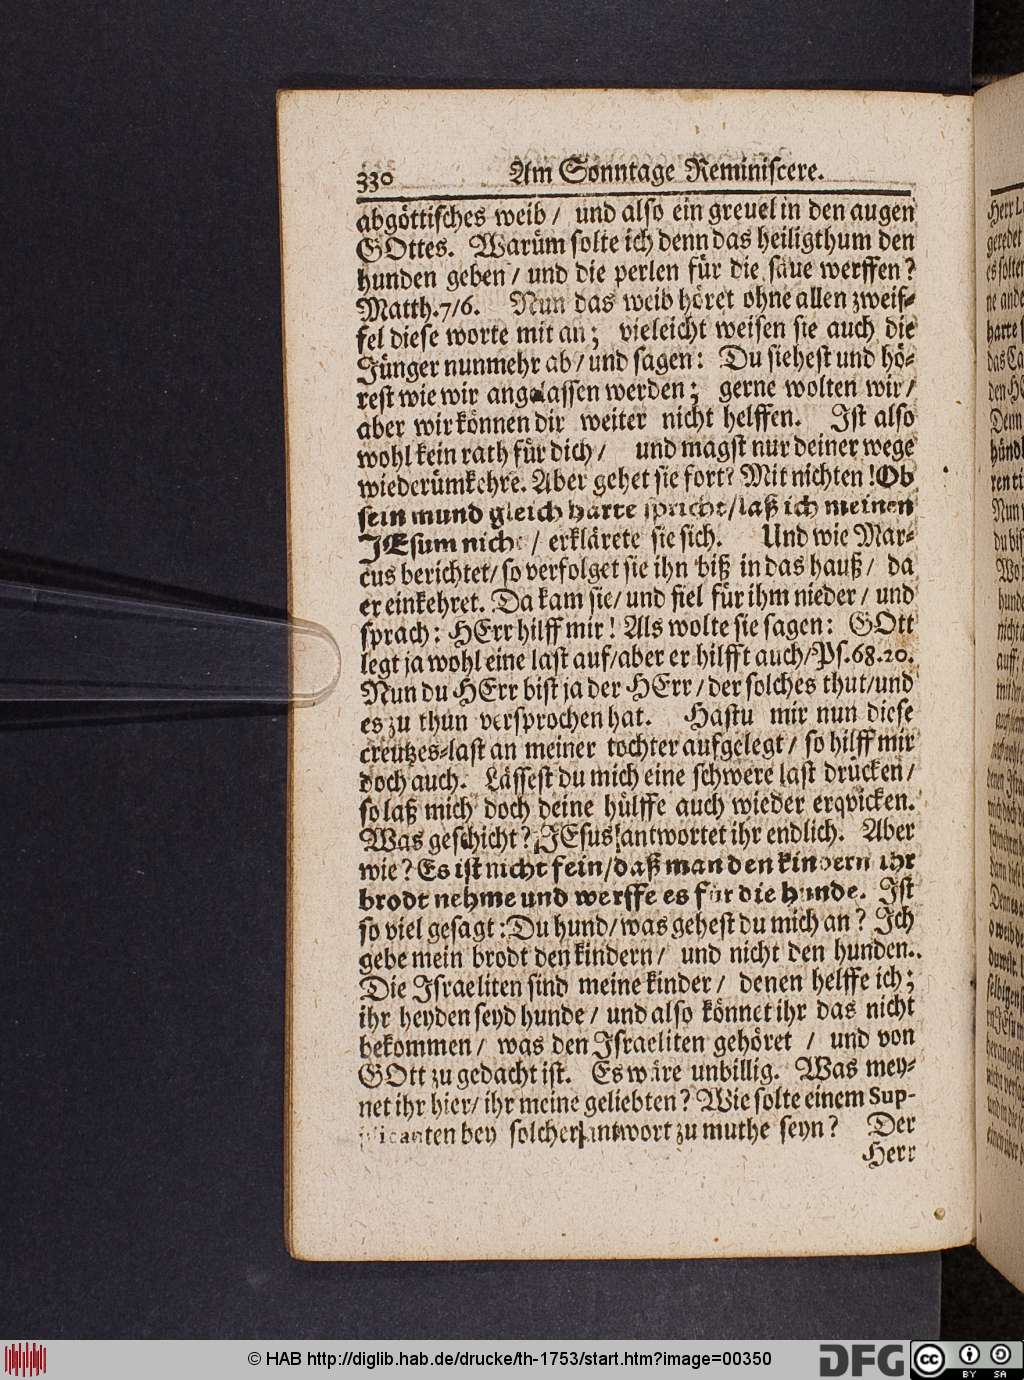 330 Am Sonntage Reminiscere.
abgöttisches weib / und also ein greuel in den augen
GOttes. Warüm solte ich denn das heiligthum den
hunden geben / und die perlen für die säue werffen?
Matth.7/6. Nun das weib höret ohne allen zweif-
fel diese worte mit an; vieleicht weisen sie auch die
Jünger nunmehr ab / und sagen: Du siehest und hö-
rest wie wir angelassen werden; gerne wolten wir /
aber wir können dir weiter nicht helffen. Ist also
wohl kein rath für dich / und magst nur deiner wege
wiederümkehre. Aber gehet sie fort? Mit nichten! Ob
sein mund gleich harte spricht / laß ich meinen
JEsum nicht / erklärete sie sich. Und wie Mar-
cus berichtet / so verfolget sie ihn biß in das hauß / da
er einkehret. Da kam sie / und fiel für ihm nieder / und
sprach: HErr hilff mir! Als wolte sie sagen: GOtt
legt ja wohl eine last auf / aber er hilfft auch / Ps.68.20.
Nun du HErr bist ja der HErr / der solches thut / und
es zu thun versprochen hat. Hastu mir nun diese
creutzes-last an meiner tochter aufgelegt / so hilff mir
doch auch. Lässest du mich eine schwere last drücken /
so laß mich doch deine hülffe auch wieder erqvicken.
Was geschicht? JEsus antwortet ihr endlich. Aber
wie? Es ist nicht fein / daß man den kindern ihr
brodt nehme und werffe es für die hunde. Ist
so viel gesagt: Du hund / was gehest du mich an? Ich
gebe mein brodt den kindern / und nicht den hunden.
Die Israeliten sind meine kinder / denen helffe ich;
ihr heyden seyd hunde / und also könnet ihr das nicht
bekommen / was den Israeliten gehöret / und von
GOtt zu gedacht ist. Es wäre unbillig. Was mey-
net ihr hier / ihr meine geliebten? Wie solte einem Sup-
plicanten bey solcher antwort zu muthe seyn? Der
Herr
© HAB http://diglib.hab.de/drucke/th-1753/start.htm?image=00350
DFG
cc BY SA